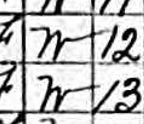 F W 12
F W 13